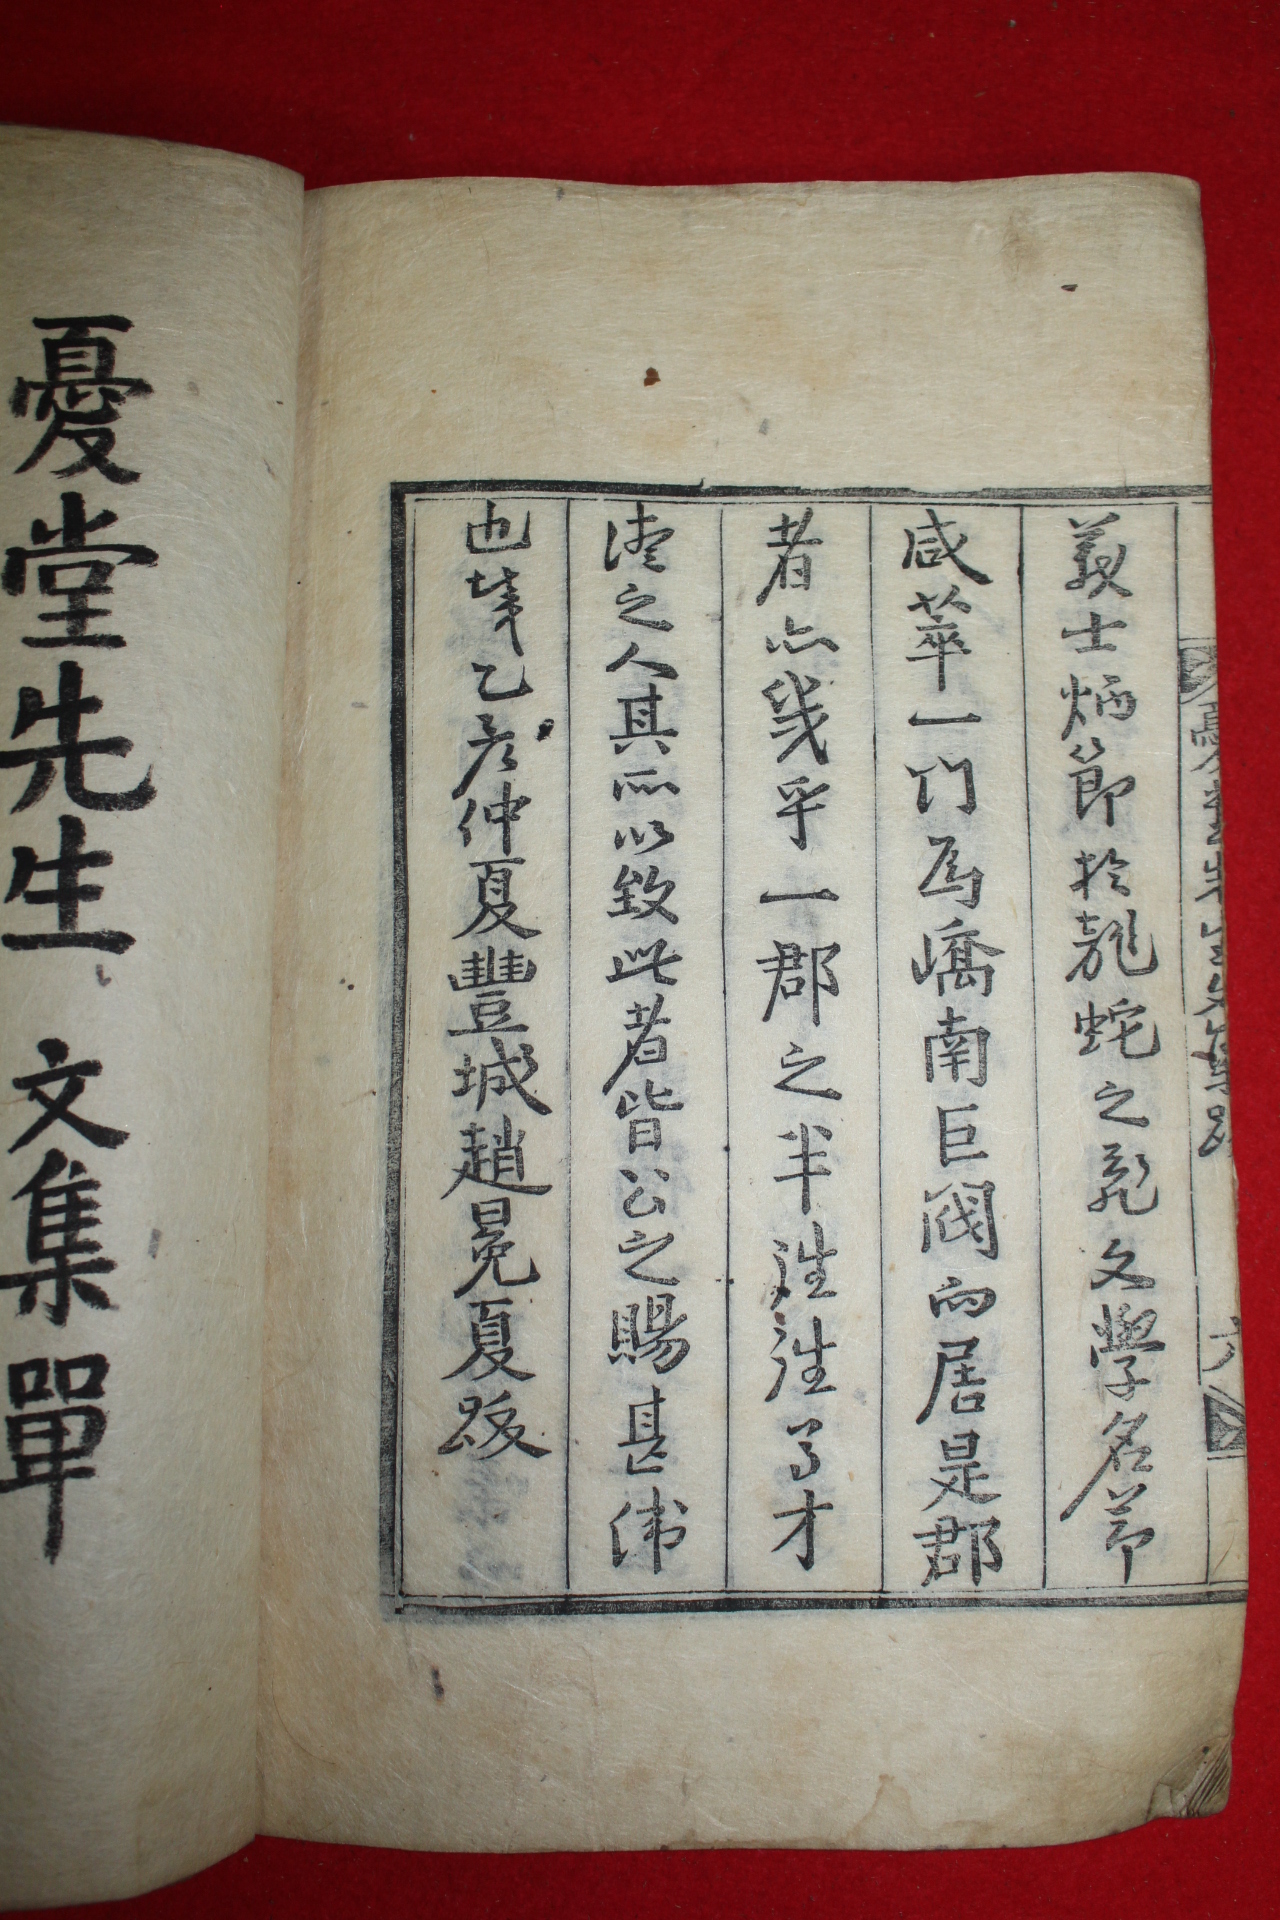 義士炳節於龍蛇之亂文學名節
咸萃一門爲嶠南巨閥而居是郡
者亦幾乎一郡之半往往多才
德之人其所以致此者皆公之賜甚偉
也歲乙亥仲夏豐城趙冕夏跋
憂堂先生 文集單